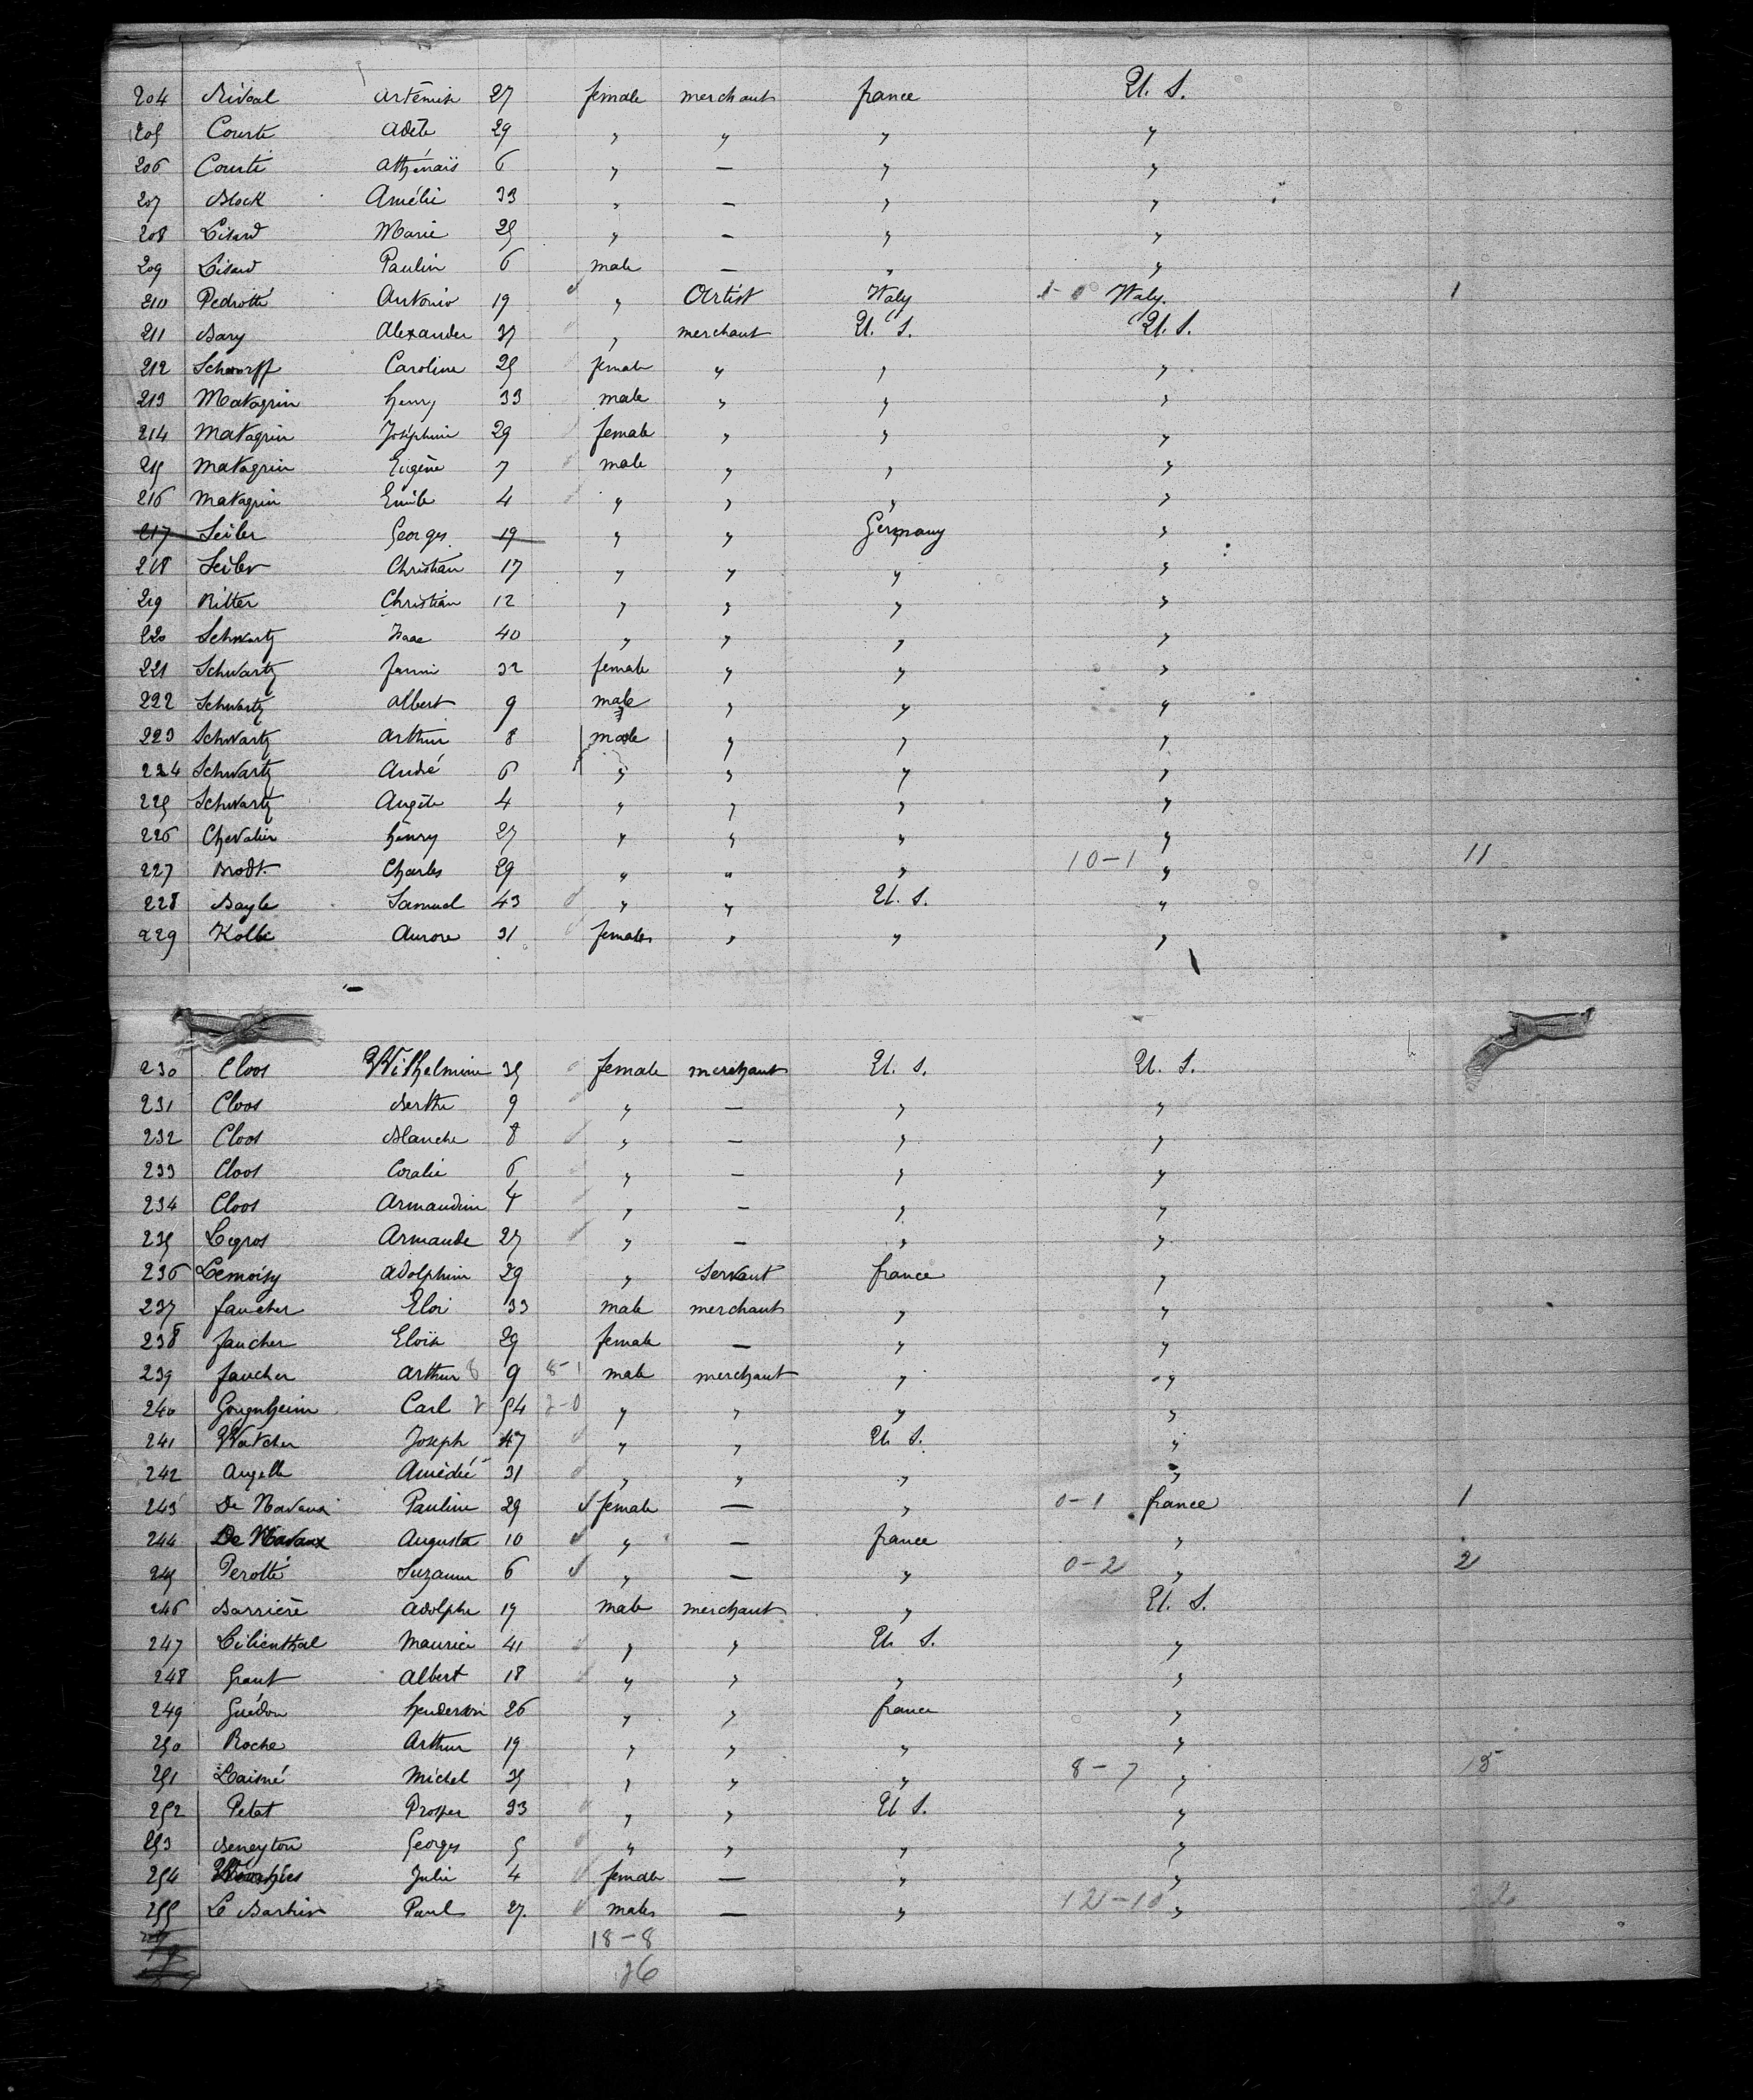 204 Rivoal Artémise 27 female merchant france U. S.
205 Courte Adèle 29 " " " "
206 Courte Athénaïs 6 " — " "
207 Block Amélie 33 " — " "
208 Lisard Marie 25 " — " "
209 Lisard Paulin 6 male — " "
210 Pedrotti Antonio 19 " Artist Italy 1-0 Italy. 1
211 Bary Alexander 37 " merchant U. S. U. S.
212 Schwarff Caroline 25 female " " "
213 Matagrin henry 33 male " " "
214 Matagrin Joséphine 29 female " " "
215 Matagrin Eugène 7 male " " "
216 Matagrin Emile 4 " " " "
217 Seiler Georges 19 " " Germany "
218 Seiler Christian 17 " " " "
219 Ritter Christian 12 " " " "
220 Schwartz Isaac 40 " " " "
221 Schwartz fanni 32 female " " "
222 Schwartz albert 9 male " " "
223 Schwartz Arthur 8 male " " "
224 Schwartz André 6 " " " "
225 Schwartz Angèle 4 " " " "
226 Chevalier henry 27 " " " "
227 Brodt. Charles 29 " " " 10-1 " 11
228 Bayle Samuel 43 " " U. S. "
229 Kolbe Aurore 31 females " " "
230 Cloos Wilhelmine 35 female merchant U. S. U. S.
231 Cloos Berthe 9 " — " "
232 Cloos Blanche 8 " — " "
233 Cloos Coralie 6 " — " "
234 Cloos Armandine 4 " — " "
235 Legros Armande 27 " — " "
236 Lemoisy Adolphine 29 " Servant france "
237 faucher Eloi 33 male merchant " "
238 faucher Eloïse 29 female — " "
239 faucher Arthur 8 9 8-1 male merchant " "
240 Gougnheim Carl 2 54 2-0 " " " "
241 Watcher Joseph 47 " " U. S. "
242 Angelle Amédée 31 " " " "
243 De Navaux Pauline 29 female — " 0-1 france 1
244 De Navaux Augusta 10 " — france "
245 Perotté Suzanne 6 " — " 0-2 " 2
246 Barrière Adolphe 19 male merchant " U. S.
247 Lilienthal Maurice 41 " " U. S. "
248 Grant Albert 18 " " " "
249 Guédon henderson 26 " " france "
250 Roche Arthur 19 " " " "
251 Laisné Michel 35 " " " 8-7 " 15
252 Petat Prosper 33 " " U. S. "
253 Beneyton Georges 5 " " " "
254 Julie 4 female — " "
255 Le Barbier Paul 27. males — " 12-10 " 22
18-8
26